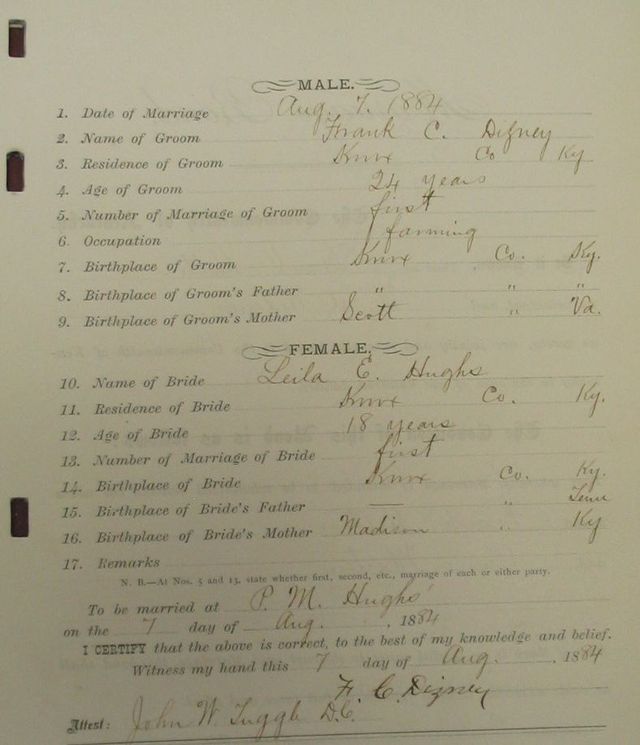 MALE.
1. Date of Marriage Aug. 7. 1884
2. Name of Groom Frank C. Dizney
3. Residence of Groom Knox Co Ky
4. Age of Groom 24 years
5. Number of Marriage of Groom first
6. Occupation farming
7. Birthplace of Groom Knox Co. Ky.
8. Birthplace of Groom's Father " " "
9. Birthplace of Groom's Mother Scott " Va.
FEMALE.
10. Name of Bride Leila E. Hughs
11. Residence of Bride Knox Co. Ky.
12. Age of Bride 18 years
13. Number of Marriage of Bride first
14. Birthplace of Bride Knox Co. Ky.
15. Birthplace of Bride's Father — " Tenn
16. Birthplace of Bride's Mother Madison " Ky
17. Remarks
N. B.—At Nos. 5 and 13, state whether first, second, etc., marriage of each or either party.
To be married at P. M. Hughs'
on the 7 day of Aug. , 1884
I CERTIFY that the above is correct, to the best of my knowledge and belief.
Witness my hand this 7 day of Aug. , 1884
F. C. Dizney
Attest: John W. Tuggle D.C.